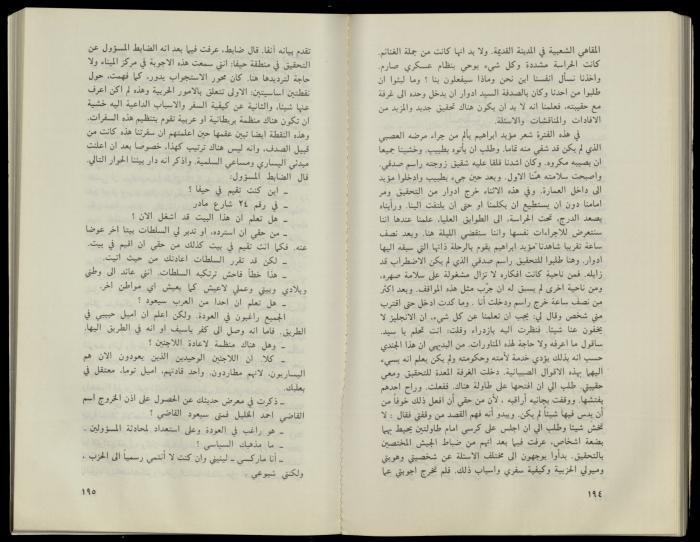 المقاهي الشعبية في المدينة القديمة. ولا بد انها كانت من جملة الغنائم.
كانت الحراسة مشددة وكل شيء يوحي بنظام عسكري صارم.
واخذنا نسأل انفسنا اين نحن وماذا سيفعلون بنا ؟ وما لبثوا ان
طلبوا من احدنا وكان بالصدفة السيد ادوار ان يدخل وحده الى غرفة
مع حقيبته، فعلمنا انه لا بد ان يكون هناك تحقيق جديد والمزيد من
الافادات والمناقشات والاسئلة.
في هذه الفترة شعر مؤيد ابراهيم بألم من جراء مرضه العصبي
الذي لم يكن قد شفي منه تماما. وطلب ان يأتوه بطبيب. وخشينا جميعا
ان يصيبه مكروه. وكان اشدنا قلقا عليه شقيق زوجته راسم صدقي.
واصبحت سلامته همّنا الاول. وبعد حين جيء بطبيب وادخلوا مؤيد
الى داخل العمارة. وفي هذه الاثناء خرج ادوار من التحقيق ومر
امامنا دون ان يستطيع ان يكلمنا او حتى ان يلتفت الينا. ورأيناه
يصعد الدرج، تحت الحراسة، الى الطوابق العليا، علمنا عندها اننا
سنتعرض للاجراءات نفسها واننا ستقضي الليلة هنا. وبعد نصف
ساعة تقريبا شاهدنا مؤيد ابراهيم يقوم بالرحلة ذاتها التي سبقه اليها
ادوار. وهنا طلبوا للتحقيق راسم صدقي الذي لم يكن الاضطراب قد
زايله. فمن ناحية كانت افكاره لا تزال مشغولة على سلامة صهره،
ومن ناحية اخرى لم يسبق له ان جرّب مثل هذه المواقف. وبعد اكثر
من نصف ساعة خرج راسم ودخلت أنا . وما كدت ادخل حتى اقترب
مني شخص وقال لي: يجب ان تعلمنا عن كل شيء. ان الانجليز لا
يخفون عنا شيئا. فنظرت اليه بازدراء وقلت، انت تحلم يا سيد.
سأقول ما اعرفه ولا حاجة لهذه المناورات. من البديهي ان هذا الجندي
حسب انه بذلك يؤدي خدمة لأمته وحكومته ولم يكن يعلم انه يسيء
اليهما بهذه الاقوال الصبيانية. دخلت الغرفة المعدة للتحقيق ومعي
حقيبتي. طلب الي ان افتحها على طاولة هناك. ففعلت. وراح احدهم
يفتشها. ووقفت بجانبه أراقبه ، لأن من حقي أن افعل ذلك خوفا من
أن يدس فيها شيئا لم يكن. ويبدو أنه فهم القصد من وقفتي فقال : لا
تخش شيئا وطلب الي ان اجلس على كرسي امام طاولتين يحيط بهما
بضعة اشخاص، عرفت فيما بعد انهم من ضباط الجيش المختصين
بالتحقيق. بدأوا يوجهون الى مختلف الاسئلة عن شخصيتي وهويتي
وميولي الحزبية وكيفية سفري واسباب ذلك. فلم تخرج اجوبتي عما
١٩٤
تقدم بيانه آنفا. قال ضابط، عرفت فيما بعد انه الضابط المسؤول عن
التحقيق في منطقة حيفا: انني سمعت هذه الاجوبة في مركز الميناء ولا
حاجة لترديدها هنا. كان محور الاستجواب يدور، كما فهمت، حول
نقطتين اساسيتين: الاولى تتعلق بالامور الحربية وهذه لم اكن اعرف
عنها شيئا، والثانية عن كيفية السفر والاسباب الداعية اليه خشية
ان تكون هناك منظمة بريطانية او عربية تقوم بتنظيم هذه السفرات.
وهذه النقطة ايضا تبين عقمها حين اعلمتهم ان سفرتنا هذه كانت من
قبيل الصدف، وانه ليس هناك ترتيب كهذا، خصوصا بعد ان اعلنت
مبدئي اليساري ومساعي السلمية. واذكر انه دار بيننا الحوار التالي.
قال الضابط المسؤول:
ـ اين كنت تقيم في حيفا ؟
ـ في رقم ٢٤ شارع مادر
ـ هل تعلم ان هذا البيت قد اشغل الان ؟
ـ من حقي ان استرده، او تدبر لي السلطات بيتا اخر عوضا
عنه. فكما انت تقيم في بيت كذلك من حقي ان اقيم في بيت.
ـ لكن قد تقرر السلطات اعادتك من حيث اتيت.
ـ هذا خطأ فاحش ترتكبه السلطات. انني عائد الى وطني
وبلادي وبيتي وعملي لاعيش كما يعيش اي مواطن اخر.
ـ هل تعلم ان احدا من العرب سيعود ؟
الجميع راغبون في العودة. ولكن اعلم ان اميل حبيبي في
الطريق. فاما انه وصل الى كفر ياسيف او انه في الطريق اليها.
ـ وهل هناك منظمة لاعادة اللاجئين ؟
ـ كلا. ان اللاجئين الوحيدين الذين يعودون الان هم
اليساريون، لانهم مطاردون. واحد قادتهم، اميل توما، معتقل في
بعلبك.
ـ ذكرت في معرض حديثك عن الحصول على اذن الخروج اسم
القاضي احمد الخليل فمتى سيعود القاضي ؟
ـ هو راغب في العودة وعلى استعداد لمحادثة المسؤولين .
ـ ما مذهبك السياسي ؟
ـ أنا ماركسي ـ لينيني وان كنت لا أنتمي رسمياً الى الحزب .
ولكنني شيوعي .
١٩٥